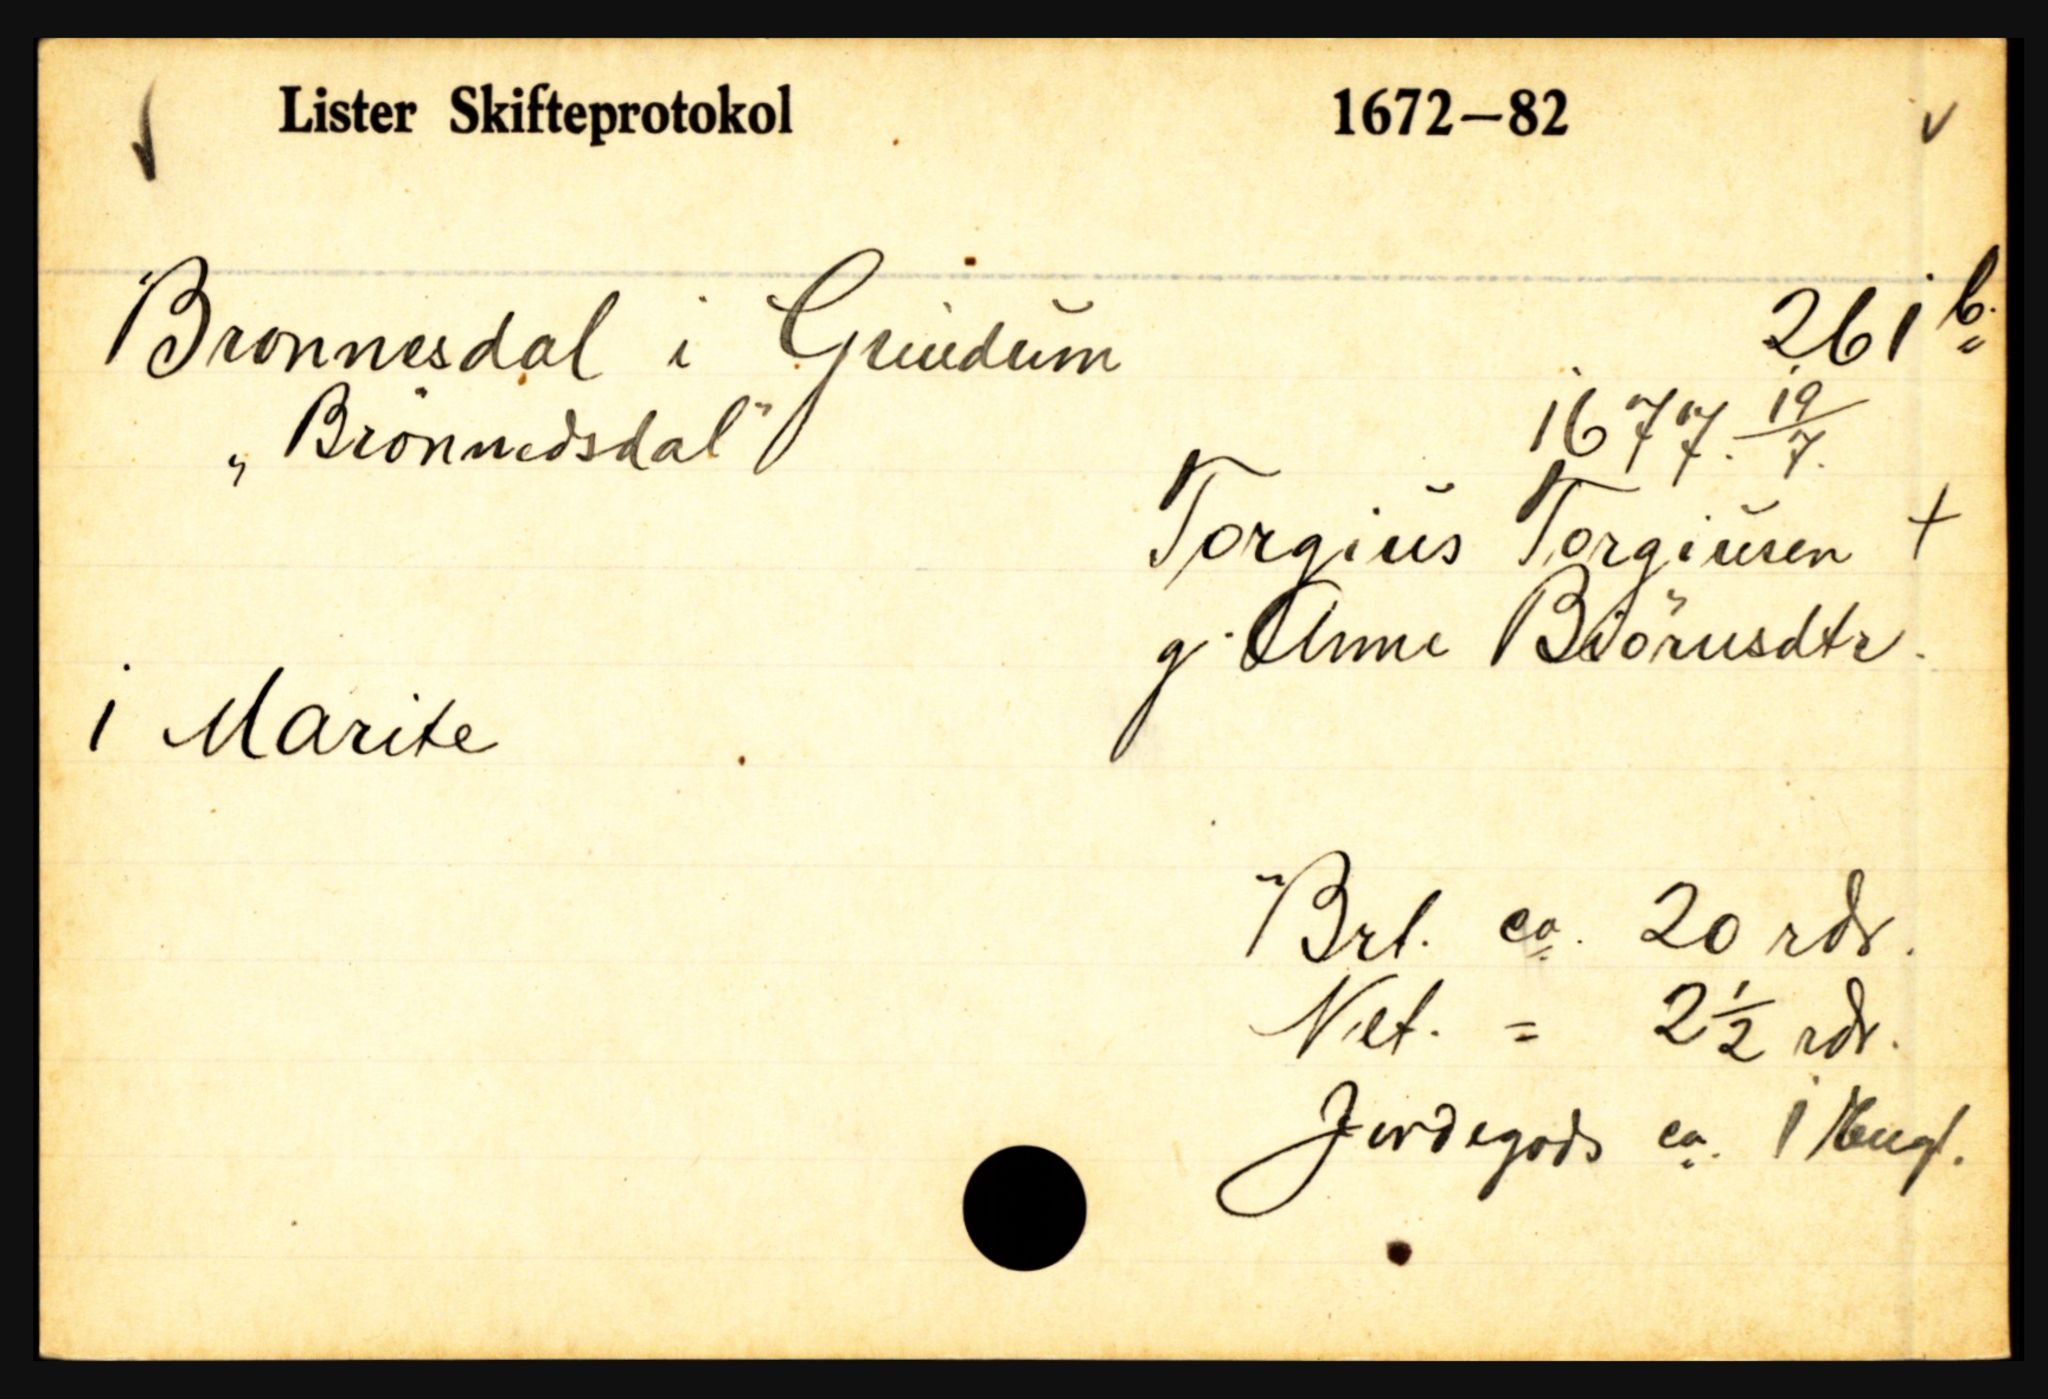 Lister Skifteprotokol 1672—82
Bronnesdal i Grindum 261 b.
„Brönnedsdal" 1677. 19/7.
Torgius Torgiusen +
g. Anne Biörnsdtr.
1 Marite
Brt. ca. 20 rdr.
Net. = 2½ rdr.
Jordegods ca. 1 Hugf.